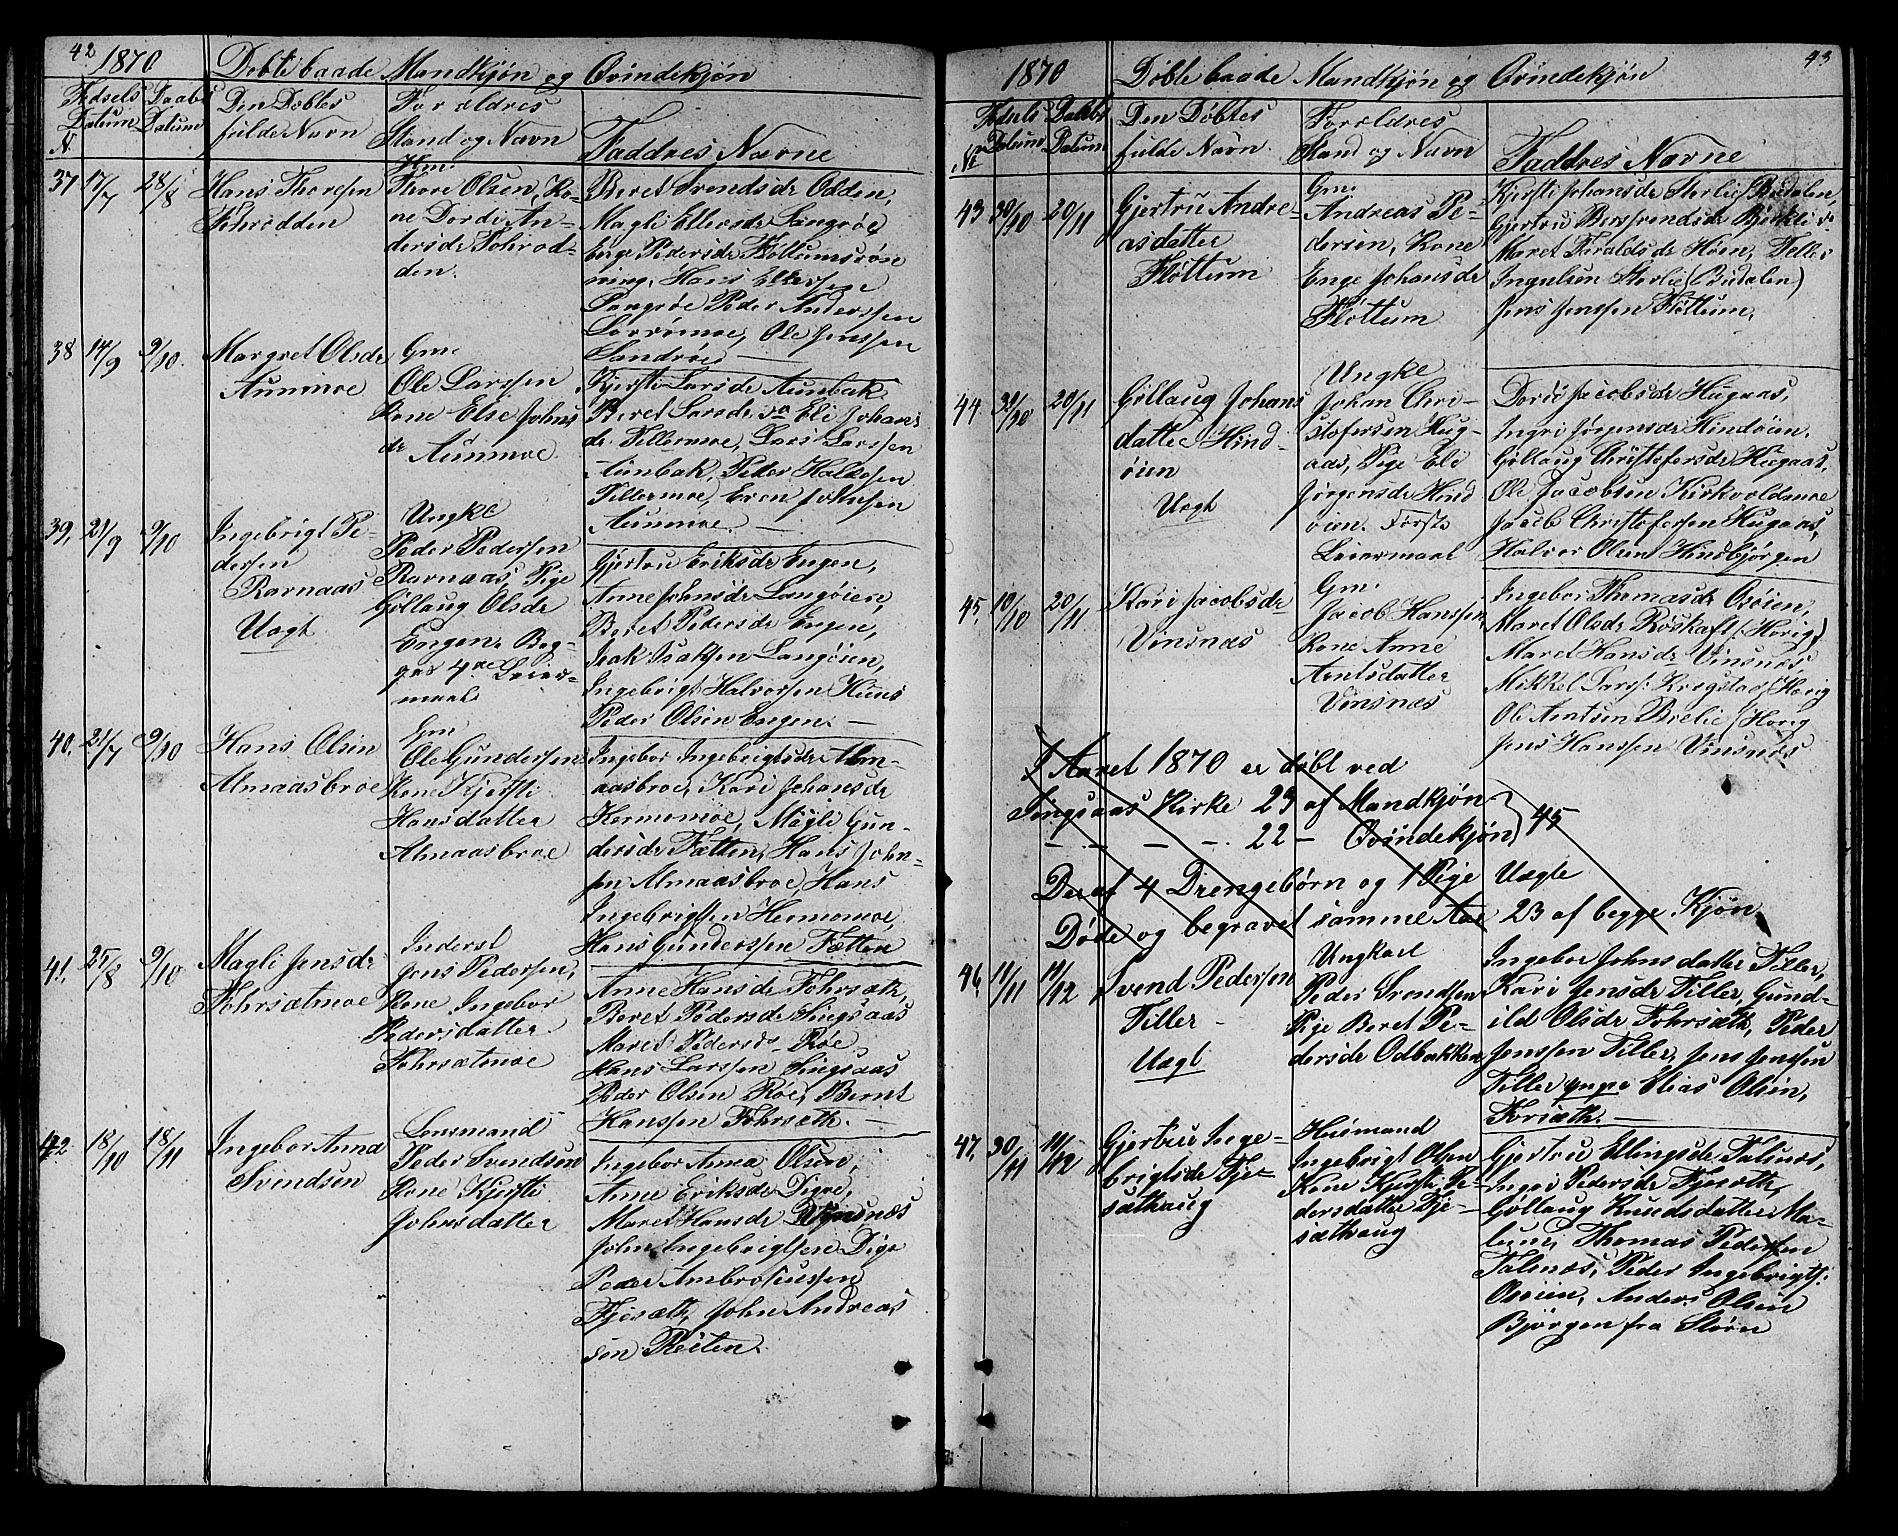 42 1870 Døbte baade Mandkjøn og Qvindekjøn
Fødsels Daabs Den Døbtes Forældres
Datum Datum fulde Navn Stand og Navn Faddres Navne
N
37 17/7 28/8 Hans Thoresen
Hm
Thore Olsen, Ko-
ne Dordi An-
dersdr
den.
Beret Svendsdr Odden,
Magli Ellevsdr Langøe
Enge Pedersdr
ning, Hans
Peder Anderssen
Ole Jenssen
Sandrøe
38 14/9 9/10. Margret Olsdr
Aunmoe
Gm.
Ole Larssen
Kone Else Johns
dr Aunmoe.
Kjersti Larsdr Aunbak
Beret Larsdr Eli Johans
dr Tillermoe, Lars Larssen
Aunbak, Peder Halvorsen
Tillermoe, Even Johnsen
Aunmoe.
39, 21/9 9/10 Ingebrigt Pe-
dersen
Ramaas
Uægt
Ungke
Peder Pedersen
Ramaas, Pige
Gøllaug Olsdr
Engen. Beg-
ges 4de Leier-
maal
Gjertru Eriksdr Engen,
Anne Johnsdr Langøien,
Beret Pedersdr Engen,
Isak Isaksen Langøien,
Ingebrigt Halvorsen
Peder Olsen Engen. —
40. 21/7 9/10 Hans Olsen
Almaasbroe
Gm
Ole Gundersen
Kone Kjersti
Hansdatter
Almaasbroe
Ingebor Ingebrigtsdr Alm-
aasbroe, Kari Johansdr
Magli Gun-
dersdr Fætten, Hans John-
sen Almaasbroe, Hans
Ingebrigtsen
Hans Gunderssen Fætten
41. 25/8 9/10 Magli Jensdr
Fohrsætmoe
Inderst
Jens Pedersen,
Kone Ingebor
Pedersdatter
Fohrsætmoe
Anne Hansdr Fohrsæth,
Beret Pedersdr Singsaas
Maret Pedersdr Røe
Hans Larssen Singsaas
Peder Olsen Røe, Bernt
Hanssen Fohrsæth. —
42 18/10 18/11 Ingebor Anna
Svendsen
Lensmand
Peder Svendsen
Kone Kjersti
Johnsdatter
Ingebor Anna Olsen,
Anne Eriksdr Digre,
Maret Hansdr
John Ingebrigtsen Digre
Peder Ambrosiussen
Fjesæth, John Andreas
sen Reiten.
1870 Døbte baade Mandkjøn og Qvindekjøn 43
Fødsels Daabs Den Døbtes Forældres
Nr Datum Datum fulde Navn Stand og Navn Faddres Navne
43 30/10 20/11 Gjertru Andre-
asdatter
Fløttum
Gm.
Andreas Pe-
dersen, Kone
Enge Johansdr
Fløttum
Kjersti Johansdr Storlie Budalen,
Gjertru
Maret
Ingulsen Storlie (Budalen)
Jens Jenssen Fløttum,
44. 20/11 Gøllaug Johans
datter Hind-
øien
Uægt
Ungke
Johan Chri-
stofersen Hug-
aas, Pige Eli
Jørgensdr Hind
øien. Første
Leiermaal
Jacobsdr Hugaas,
Ingri Jørgensdr Hindøien,
Gøllaug Christofersdr Hugaas,
Ole Jacobsen Kirkvoldmoe
Jacob Christofersen Hugaas,
Halvor Olsen Hindbjørgen
45. 10/10 20/11 Kari Jacobsdr
Vinsnæs
Gm.
Jacob Hanssen,
Kone Anne
Arntsdatter
Vinsnæs
Ingebor Thomasdr Osøien,
Maret Olsdr Røskaft (Horig)
Maret Hansdr Vinsnæs
Mikkel Larss: Krogstad Horig
Ole Arntsen Brelie (Horig
Jens Hanssen Vinsnæs
I Aaret 1870 er døbt ved
Singsaas Kirke 23 af Mandkjøn
— — — — 22 — Qvindekjøn } 45
Deraf 4 Drengebørn og 1 Pige Uægte
Døde og begravet samme Aar 23 af begge Kjøn
46. 11/11 11/12 Svend Pedersen
Tiller
Uægt
Ungkarl
Peder Svendsen
Pige Beret Pe-
dersdr Odbakken
Ingebor Johnsdatter Tiller,
Kari Jensdr Tiller, Gund-
ild Olsdr Fohrsæth, Peder
Jenssen Tiller, Jens Jenssen
Tiller Elias Olsen,
Forsæth. —
47. 30/11 11/12 Gjertru Inge-
brigtsdr Fje-
sæthaug
Husmand
Ingebrigt Olsen
Kone Kjersti Pe-
dersdatter Fje-
sæthaug
Gjertru Ellingsdr Talsnæs,
Ingri Pedersdr Fjesæth,
Gøllaug Knudsdatter Mo-
Thomas Pedersen
Talsnæs, Peder Ingebrigts:
Osøien, Anders Olsen
Bjørgen fra Støren